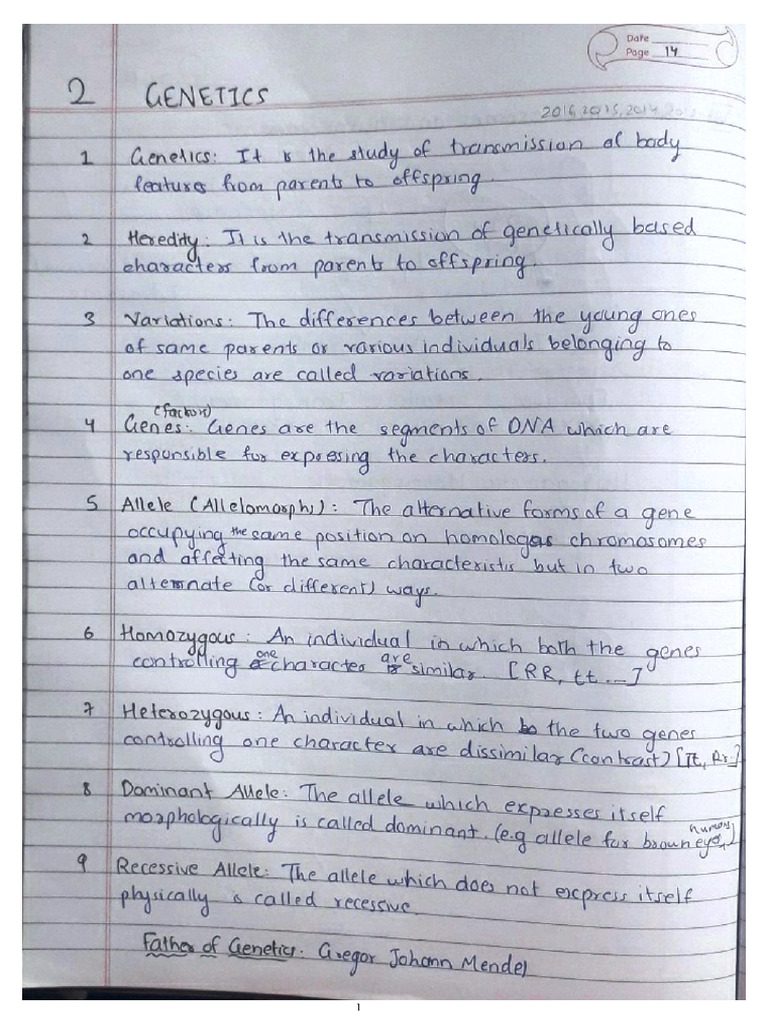 Date
Page 14
2 GENETICS
2016, 2015, 2014
1 Genetics: It is the study of transmission of body
features from parents to offspring.
2 Heredity: It is the transmission of genetically based
characters from parents to offspring.
3 Variations: The differences between the young ones
of same parents or various individuals belonging to
one species are called variations.
(factors)
4 Genes: Genes are the segments of DNA which are
responsible for expressing the characters.
5 Allele (Allelomorphs): The alternative forms of a gene
occupying the same position on homologous chromosomes
and affecting the same characteristis but in two
alternate (or different) ways.
6 Homozygous: An individual in which both the genes
controlling one character are similar. [RR, tt ...]
7 Heterozygous: An individual in which the two genes
controlling one character are dissimilar (contrast) [Tt, Rr]
8 Dominant Allele: The allele which expresses itself
morphologically is called dominant. (e.g allele for brown eyes,
9 Recessive Allele: The allele which does not express itself
physically is called recessive.
Father of Genetics: Gregor Johann Mendel
1